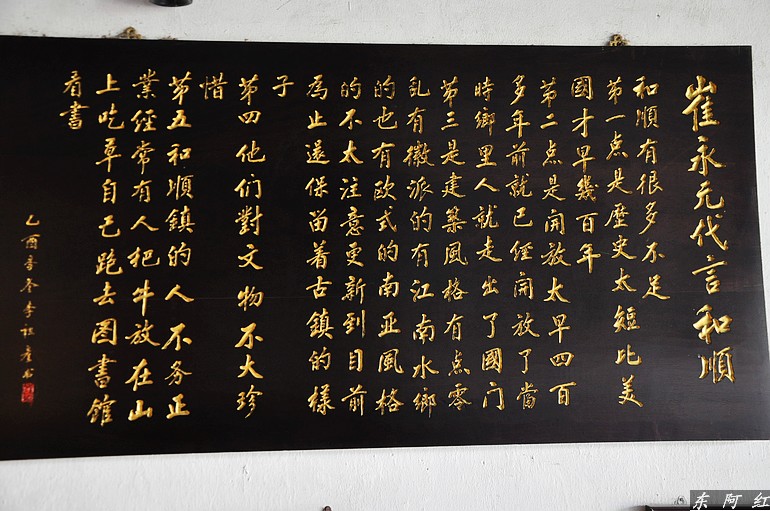 崔永元代言和順
和順有很多不足
第一点是歷史太短比美
國才早幾百年
第二点是開放太早四百
多年前就已经開放了當
時鄉里人就走出了國門
第三是建築風格有点零
乱有徽派的有江南水鄉
的也有欧式的南亚風格
的不太注意更新到目前
為止還保留着古鎮的樣
子
第四他们對文物不大珍
惜
第五和順鎮的人不务正
業经常有人把牛放在山
上吃草自己跑去图書館
看書
乙酉
东阿红